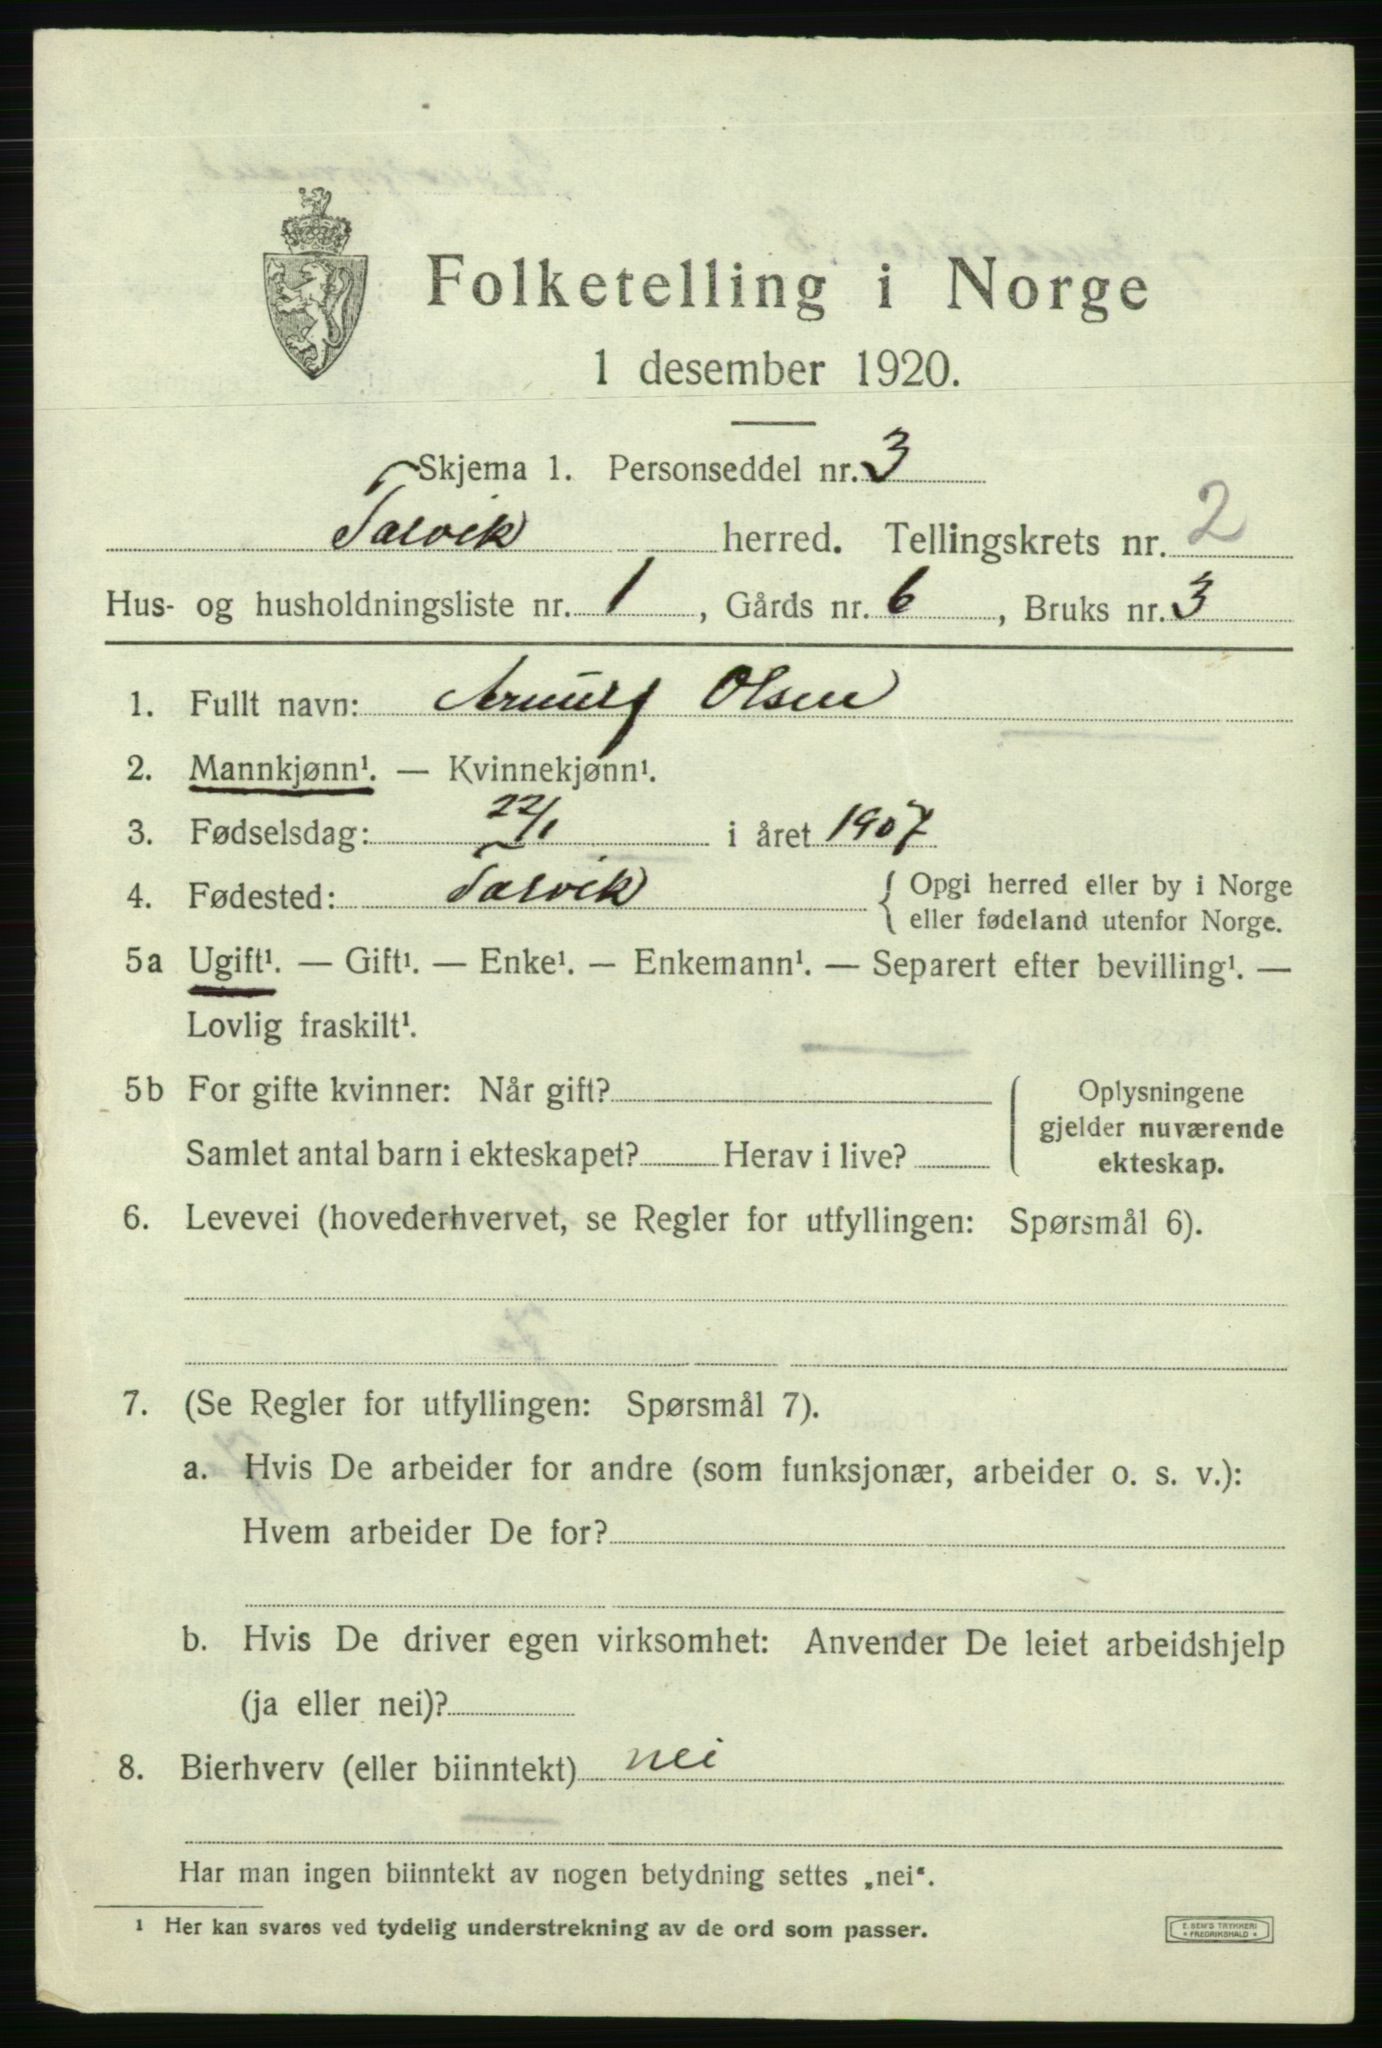 Folketelling i Norge
1 desember 1920.
Skjema 1. Personseddel nr. 3
Talvik herred. Tellingskrets nr. 2
Hus- og husholdningsliste nr. 1, Gårds nr. 6, Bruks nr. 3
1. Fullt navn: Olsen
2. Mannkjønn¹. — Kvinnekjønn¹.
3. Fødselsdag: 22/1 i året 1907
4. Fødested: Talvik { Opgi herred eller by i Norge
eller fødeland utenfor Norge.
5a Ugift¹. — Gift¹. — Enke¹. — Enkemann¹. — Separert efter bevilling¹. —
Lovlig fraskilt¹.
5b For gifte kvinner: Når gift?
Samlet antal barn i ekteskapet? Herav i live?
Oplysningene
gjelder nuværende
ekteskap.
6. Levevei (hovederhvervet, se Regler for utfyllingen: Spørsmål 6).
7. (Se Regler for utfyllingen: Spørsmål 7).
a. Hvis De arbeider for andre (som funksjonær, arbeider o. s. v.):
Hvem arbeider De for?
b. Hvis De driver egen virksomhet: Anvender De leiet arbeidshjelp
(ja eller nei)?
8. Bierhverv (eller biinntekt) nei
Har man ingen biinntekt av nogen betydning settes „nei“.
¹ Her kan svares ved tydelig understrekning av de ord som passer.
E. SEM'S TRYKKERI
* FREDRIKSHALD *